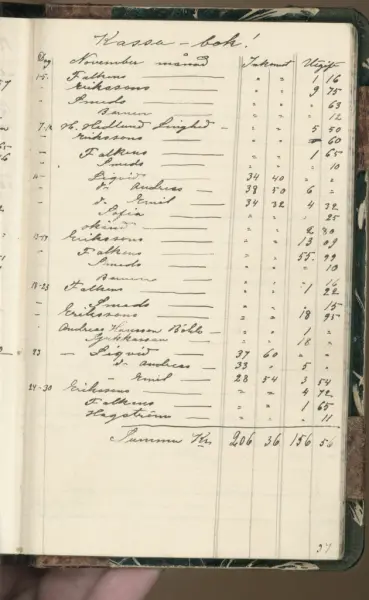 Kassa-bok!
Dag November månad Inkomst Utgift
1-5. Falkens " " 1 16
Erikssons " " 9 75
Smeds " " " 63
" " " 12
7-12 H. Hedlund " " 5 50
Erikssons " " " 60
Falkens " " 1 65
Smeds " " " 10
Liqvid 34 40 " "
d. Andreas 38 50 6 "
d. Emil 34 32 4 32
Sofia 25
okänd " " 2 80
13-17 Erikssons " " 13 09
Falkens " " 55 99
Smeds " " " 10
18-23 Falkens " " 1 22
Smeds " " " 15
Erikssons " " 18 95
Andreas Hansson " " 1 "
" " 18 "
23 Liqvid 37 60 " "
d. Andreas 33 " 5 "
" Emil 28 54 3 54
24-30 Erikssons " " 4 72
Falkens " " 1 65
Hagströms " " " 11
Summa Krs 206 36 156 56
37